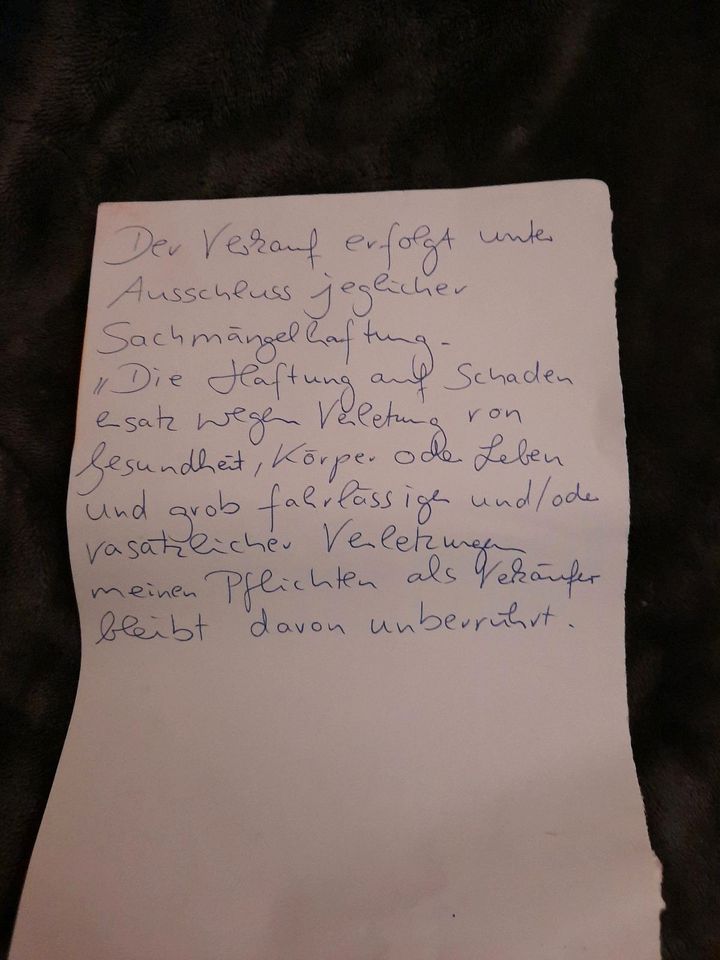 Der Verkauf erfolgt unter
Ausschluss jeglicher
Sachmängelhaftung.
„Die Haftung auf Schaden
ersatz wegen Verletung von
Gesundheit, Körper oder Leben
und grob fahrlässiger und/oder
vasätzlicher Verletzungen
meinen Pflichten als Vekäufer
bleibt davon unberrührt.